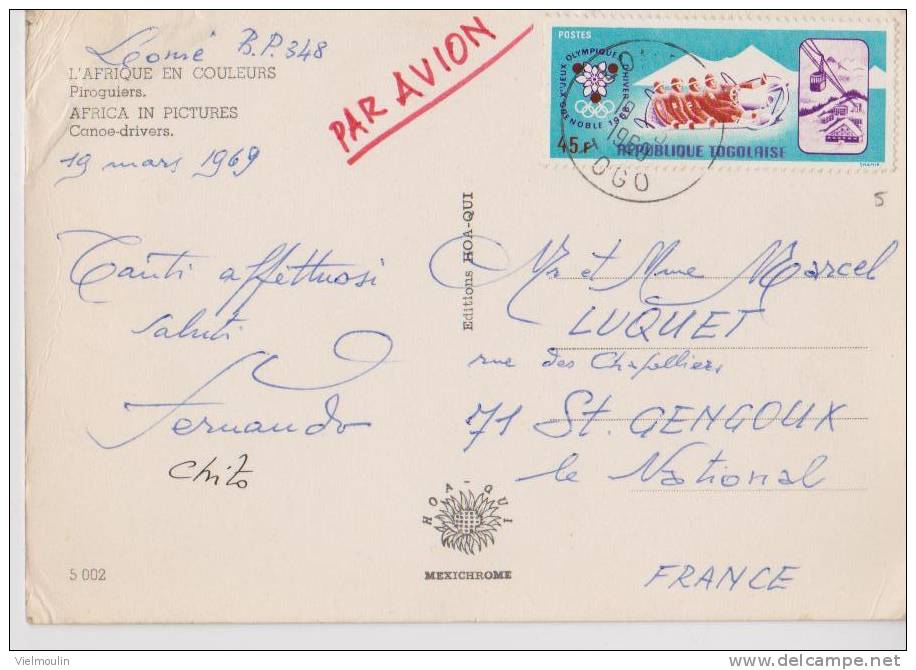 Lomé B.P. 348
L'AFRIQUE EN COULEURS
Piroguiers.
AFRICA IN PICTURES
Canoe-drivers.
19 mars 1969
PAR AVION
POSTES
XES JEUX OLYMPIQUES D'HIVER
GRENOBLE 1968
45F
REPUBLIQUE TOGOLAISE
1969
TOGO
5
Tanti affettuosi
saluti
Fernando
Chito
Editions HOA-QUI
Mr et Mme Marcel
LUQUET
rue des Chapelliers
71 St. GENGOUX
le National
FRANCE
HOA-QUI
MEXICHROME
5 002
Vielmoulin
http://www.delcampe.net